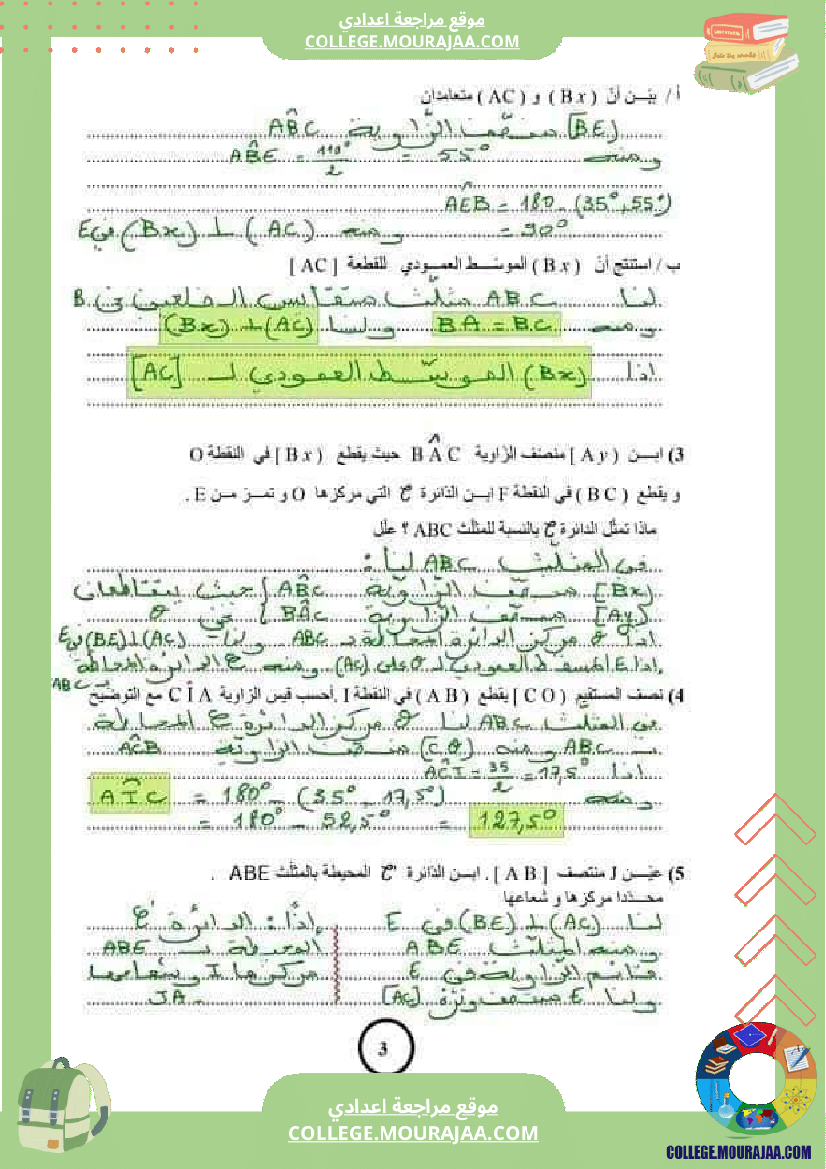 موقع مراجعة اعدادي
COLLEGE.MOURAJAA.COM
أ / بيّن أنّ (Bx) و (AC) متعامدان
[BE) منصّف الزّاوية ABC
ومنه ABE = 110°/2 = 55°
AEB = 180 - (35°+55°)
= 90° ومنه (AC) ⊥ (Bx) في E
ب / استنتج أنّ (Bx) الموسّط العمودي للقطعة [AC]
لنا ABC مثلّث متقايس الضلعين في B
ومنه BA = BC ولنا (Bx) ⊥ (AC)
إذا (Bx) الموسّط العمودي لـ [AC]
3) ابن [Ay) منصف الزّاوية BAC حيث يقطع [Bx) في النقطة O
و يقطع (BC) في النقطة F ابن الدّائرة C التي مركزها O و تمرّ من E .
ماذا تمثّل الدائرة C بالنسبة للمثلّث ABC ؟ علّل
في المثلّث ABC لنا :
[Bx) منصّف الزّاوية ABC حيث يتقاطعان
[Ay) منصّف الزّاوية BAC في O
إذا O مركز الدائرة المحاطة بـ ABC ولنا (AC)⊥(BE) في E
إذا E المسقط العمودي لـ O على (AC) ومنه C الدائرة المحاطة
بـ ABC
4) نصف المستقيم [CO) يقطع (AB) في النقطة I . أحسب قيس الزاوية CIA مع التوضيح
في المثلّث ABC لنا O مركز الدائرة C المحاطة
بـ ABC ومنه [CO) منصّف الزّاوية ACB
إذا ACI = 35/2 = 17,5°
ومنه AIC = 180° - (35° - 17,5°)
= 180° - 52,5° = 127,5°
5) عيّن J منتصف [AB] . ابن الدّائرة C' المحيطة بالمثلّث ABE .
محدّدا مركزها و شعاعها
لنا (AC) ⊥ (BE) في E
ومنه المثلّث ABE
قائم الزّاوية في E
ولنا E منتصف وتره [AC]
إذا : الدائرة C'
المحيطة بـ ABE
مركزها I وشعاعها
JA
3
موقع مراجعة اعدادي
COLLEGE.MOURAJAA.COM
COLLEGE.MOURAJAA.COM